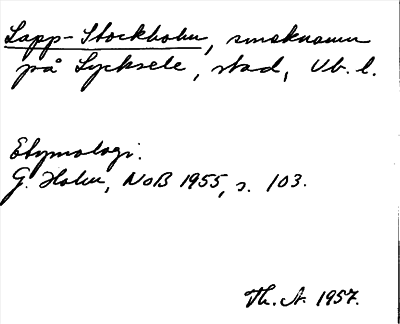 Lapp-Stockholm, smeknamn
på Lycksele, stad, Vb. l.
Etymologi.
G. Holm, NoB 1955, s. 103.
Th. A. 1957.